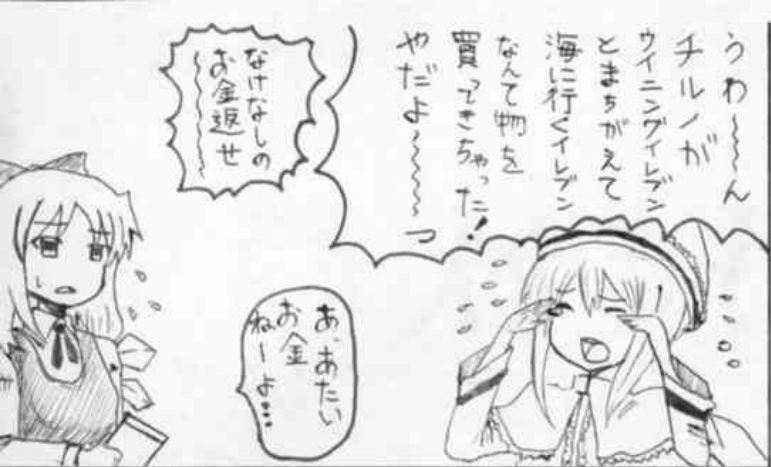 うわ～～ん
チルノが
ウイニングイレブン
とまちがえて
海に行くイレブン
なんて物を
買ってきちゃった!
やだよ～～～～っ
なけなしの
お金返せ～～～～
あ、あたい
お金
ねーよ…